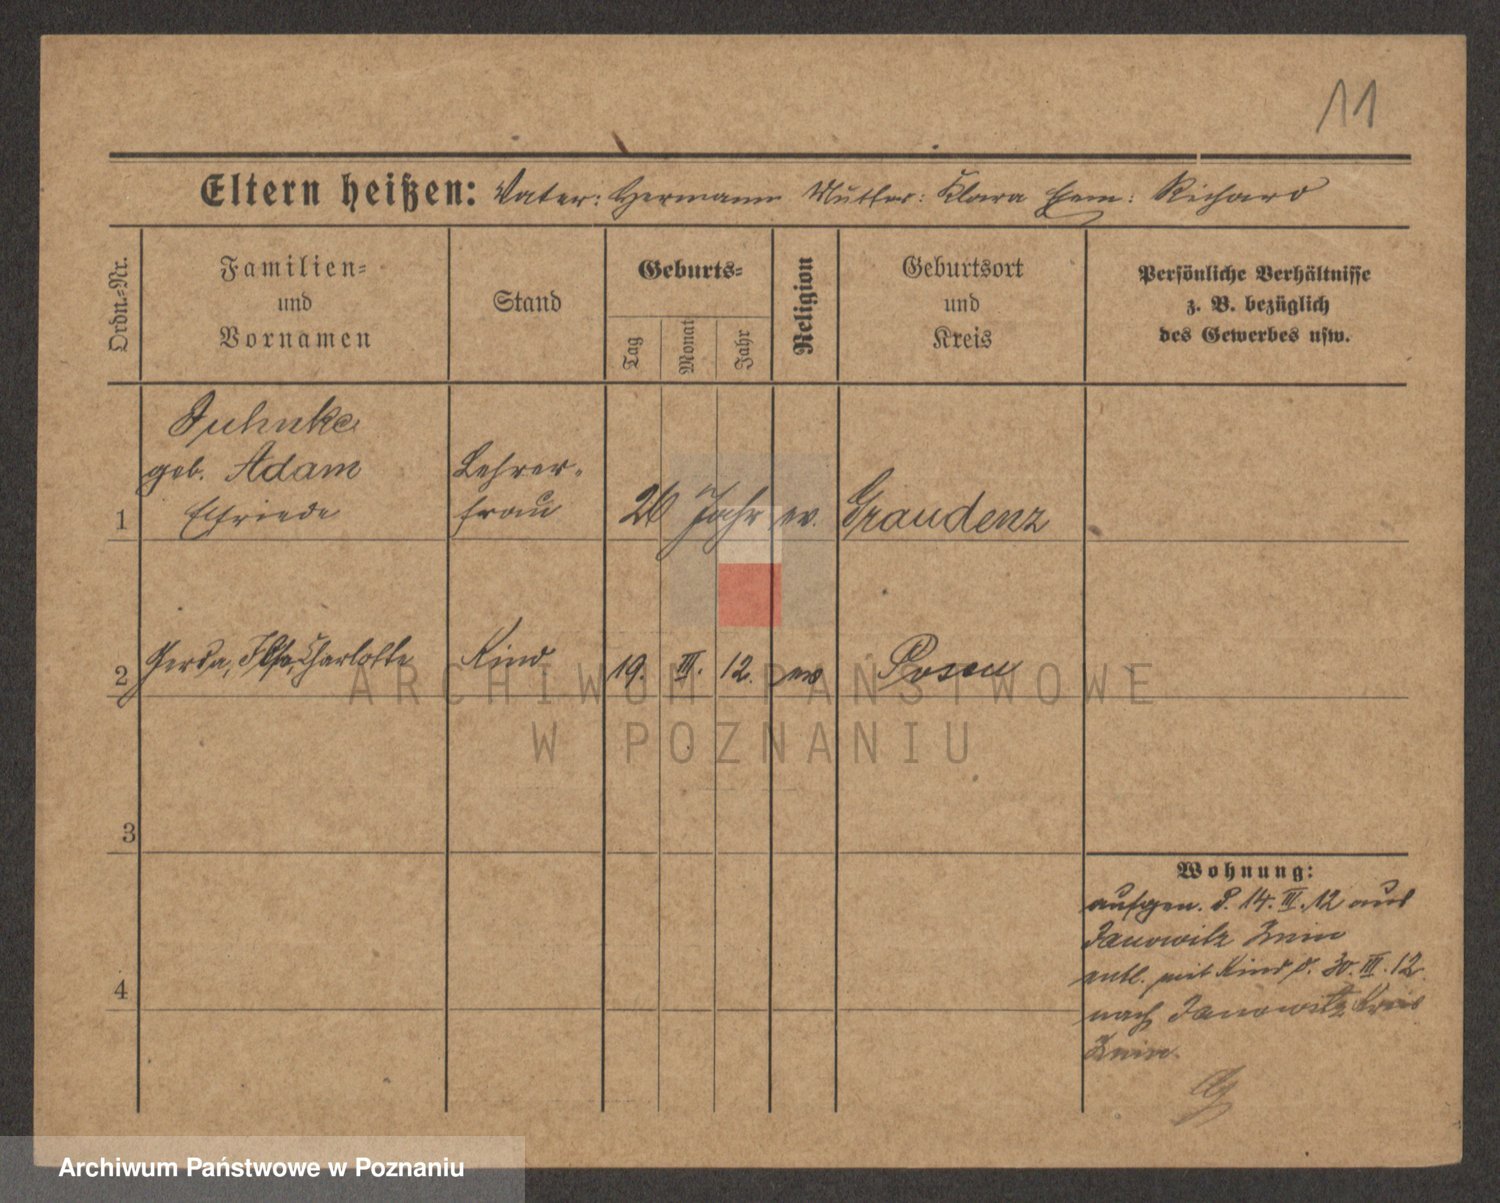 11
Eltern heißen: Vater: Hermann Mutter: Klara Ehem: Richard
Ordn.-Nr.
Familien-
und
Vornamen
Stand
Geburts-
Tag
Monat
Jahr
Religion
Geburtsort
und
Kreis
Persönliche Verhältnisse
z. B. bezüglich
des Gewerbes usw.
Juhnke
geb. Adam
Elfriede
Lehrer-
frau
1
26 Jahr
ev.
Graudenz
2
Gerda, Ilse Charlotte
Kind
19.
III.
12.
ev
Posen
3
4
Wohnung:
aufgen. d. 14. III. 12 aus
Janowitz Znin
entl. mit Kind d. 30. III. 12.
nach Janowitz Kreis
Znin.
ARCHIWUM PAŃSTWOWE
W POZNANIU
Archiwum Państwowe w Poznaniu